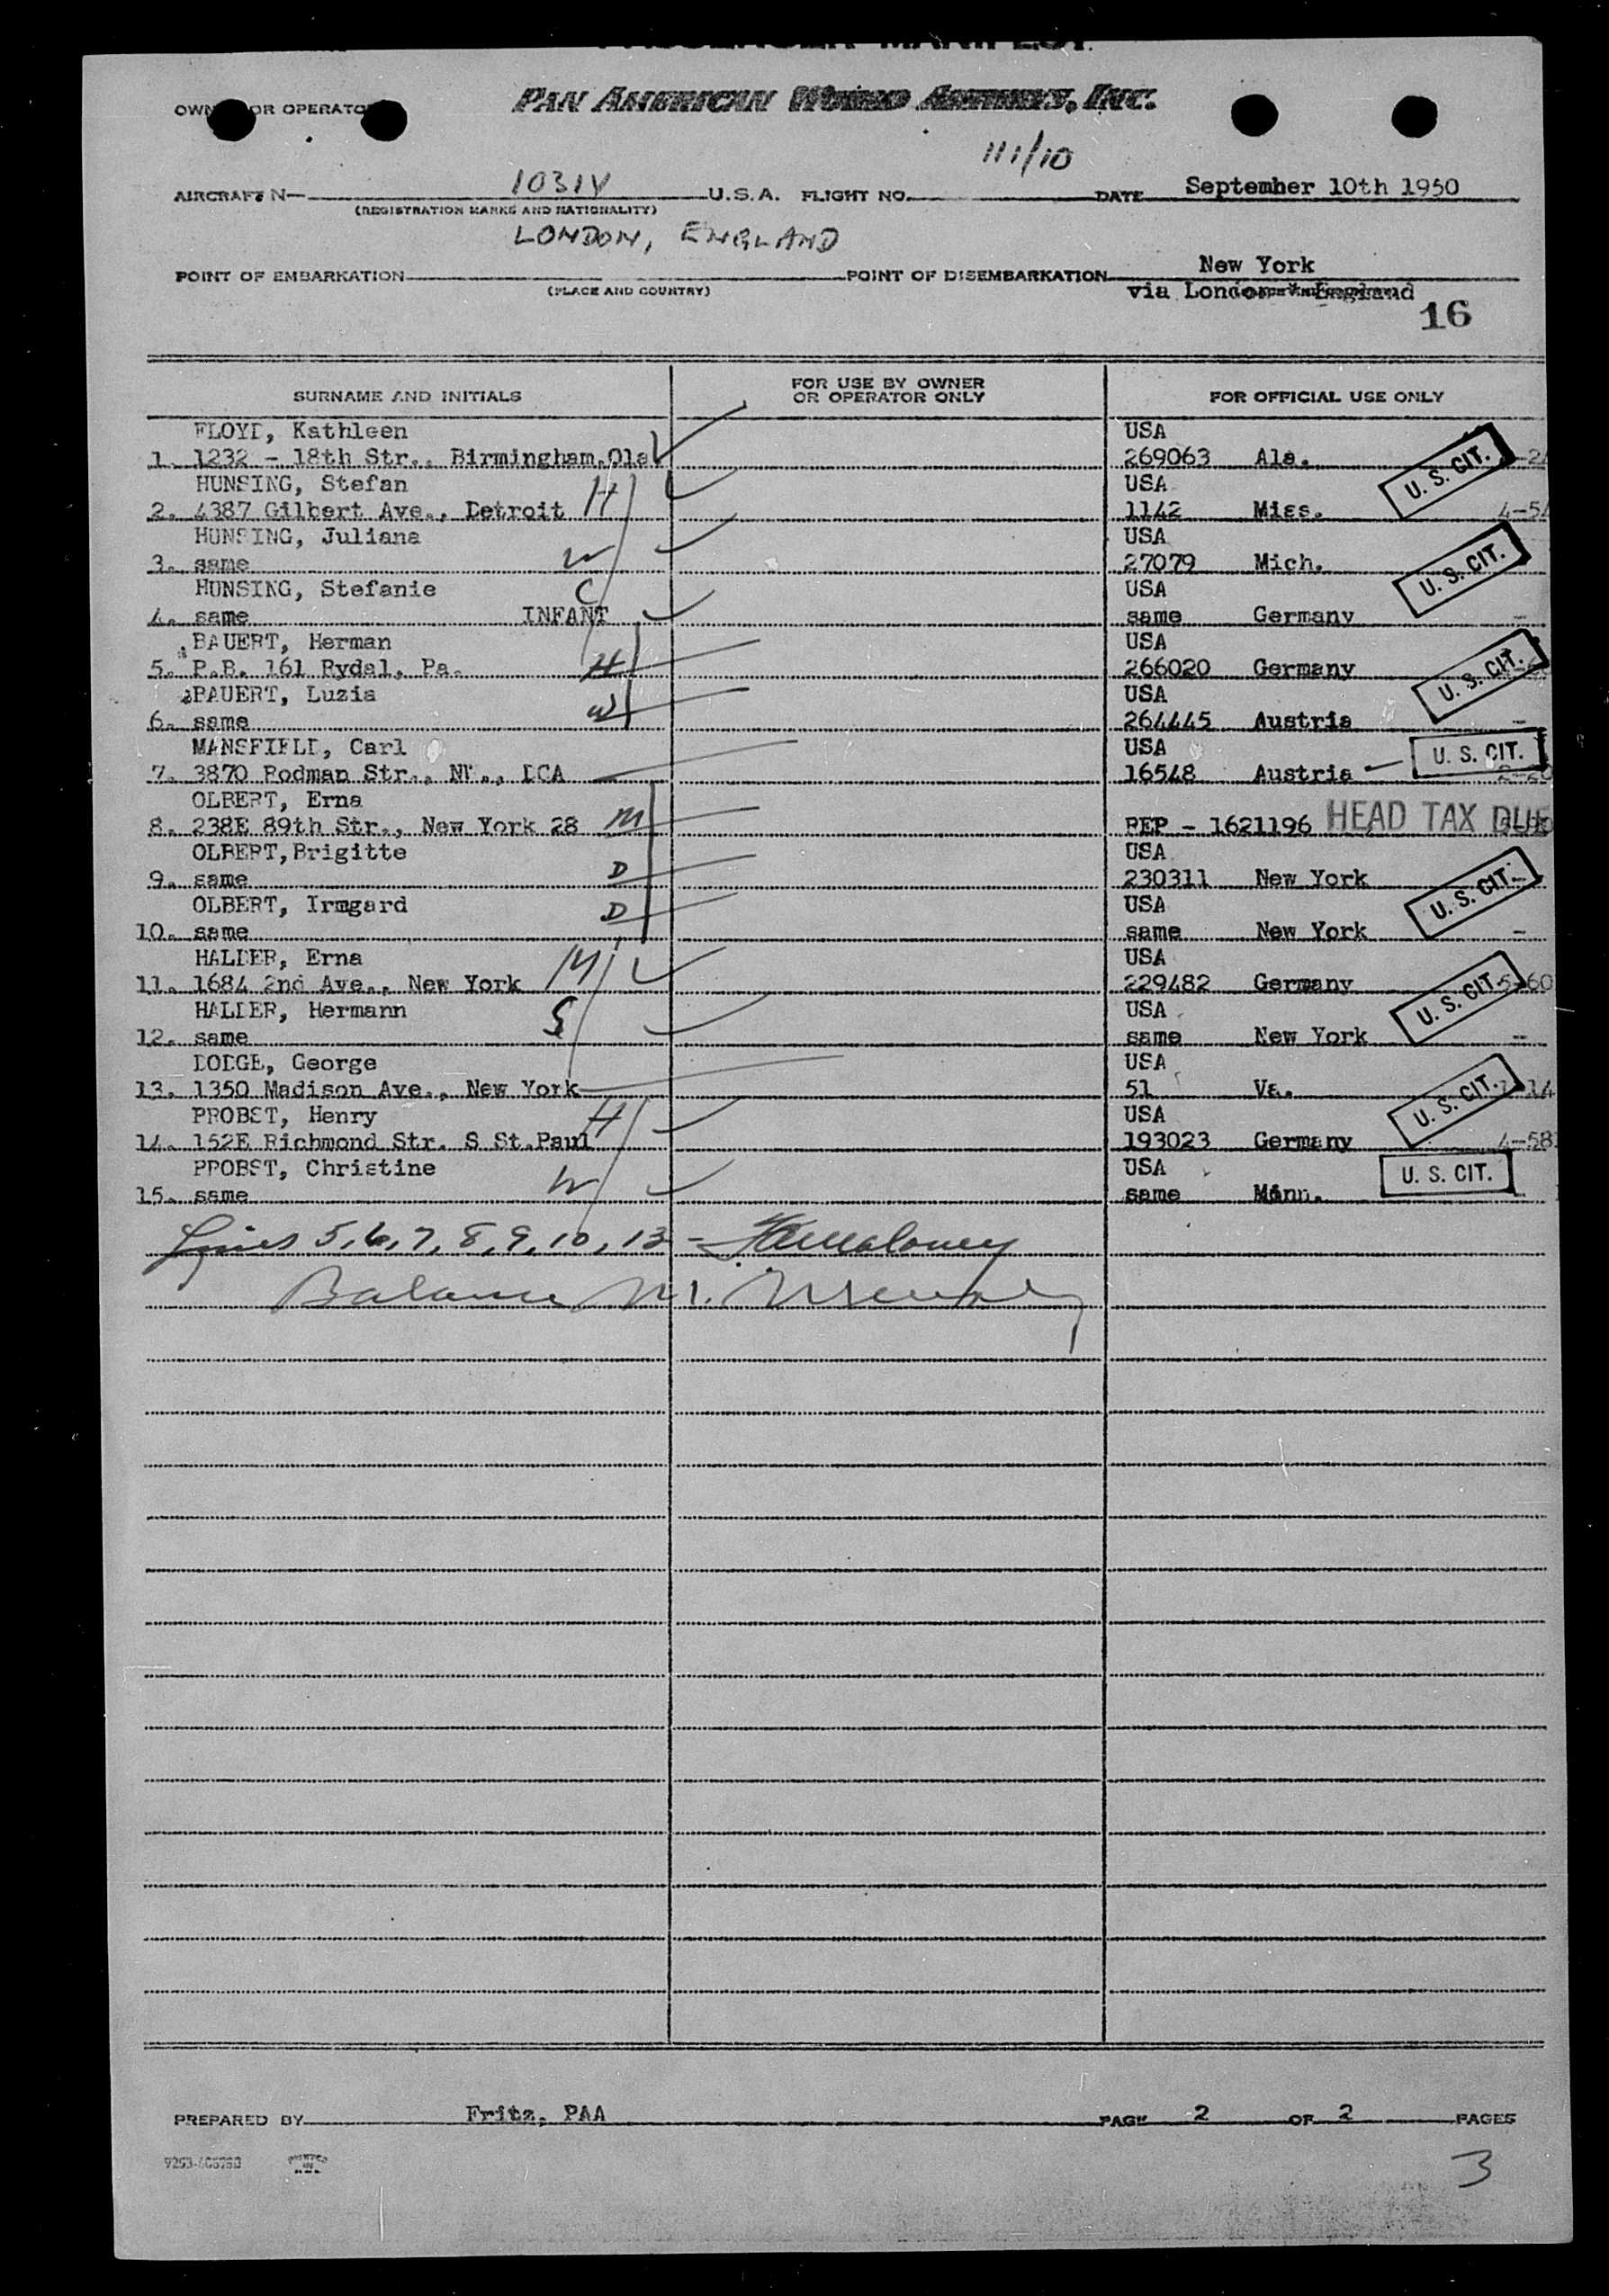 PASSENGER MANIFEST
OWNER OR OPERATOR PAN AMERICAN WORLD AIRWAYS, INC.
111/10
AIRCRAFT N— 1031V U.S.A. FLIGHT NO. DATE September 10th 1950
(REGISTRATION MARKS AND NATIONALITY)
LONDON, ENGLAND
New York
POINT OF EMBARKATION POINT OF DISEMBARKATION
(PLACE AND COUNTRY) via London England
16
SURNAME AND INITIALS FOR USE BY OWNER OR OPERATOR ONLY FOR OFFICIAL USE ONLY
FLOYD, Kathleen USA
1. 1232 - 18th Str., Birmingham, Ola 269063 Ala. U. S. CIT.
HUNSING, Stefan USA
2. 4387 Gilbert Ave., Detroit H 1142 Miss. 4-5
HUNSING, Juliana USA
3. same W 27079 Mich. U. S. CIT.
HUNSING, Stefanie C USA
4. same INFANT same Germany -
BAUERT, Herman USA
5. P.B. 161 Rydal, Pa. H 266020 Germany U. S. CIT.
BAUERT, Luzia USA
6. same W 264445 Austria -
MANSFIELD, Carl USA
7. 3870 Rodman Str., NW., DCA 16548 Austria U. S. CIT.
OLBERT, Erna
8. 238E 89th Str., New York 28 M REP - 1621196 HEAD TAX DUE
OLBERT, Brigitte USA
9. same D 230311 New York
OLBERT, Irmgard USA U. S. CIT.
10. same D same New York -
HALLER, Erna USA
11. 1684 2nd Ave., New York M 229482 Germany U. S. CIT. 5-60
HALLER, Hermann S USA
12. same same New York -
DODGE, George USA
13. 1350 Madison Ave., New York 51 Va. U. S. CIT. 14
PROBST, Henry USA
14. 152E Richmond Str. S St.Paul H 193023 Germany 4-58
PROBST, Christine USA
15. same W same Minn. U. S. CIT.
Lines 5, 6, 7, 8, 9, 10, 13 -
Balance
PREPARED BY Fritz, PAA PAGE 2 OF 2 PAGES
3